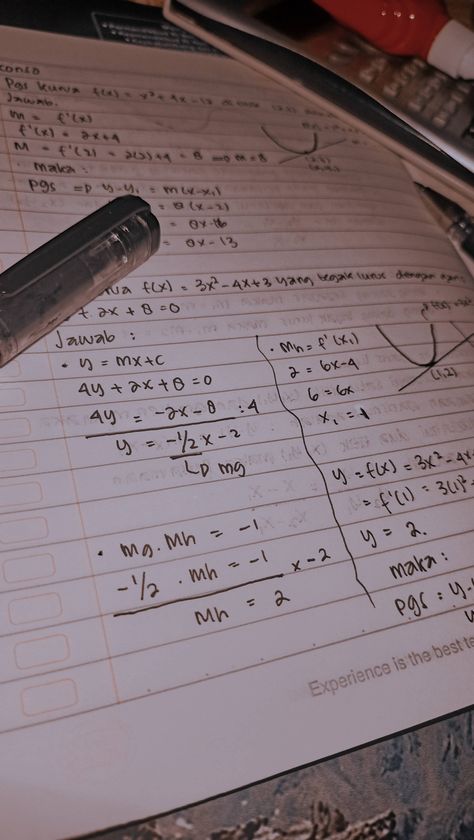 Pgs kurva f(x) = x² + 4x - 12
Jawab.
m = f'(x)
f'(x) = 2x+4
M = f'(2) = 2(2)+4 = 8 => m = 8
• maka:
pgs => y-y₁ = m(x-x₁)
= 8(x-2)
= 8x-16
= 8x-13
f(x) = 3x²-4x+3 yang tegak lurus dengan
+ 2x + 8 = 0
Jawab :
• y = mx+c
4y + 2x + 8 = 0
4y = -2x - 8 :4
y = -1/2 x - 2
mg
• mg . mh = -1
-1/2 . mh = -1 x-2
mh = 2
• mh = f'(x₁)
2 = 6x-4
6 = 6x
x₁ = 1
(1,2)
y = f(x) = 3x²-4x
= f'(1) = 3(1)²
y = 2.
maka :
pgs : y-
Experience is the best te